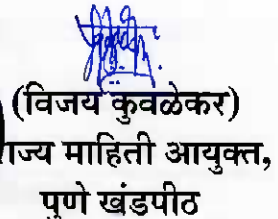 (विजय कुवळेकर)
माहिती आयुक्त,
पुणे खंडपीठ